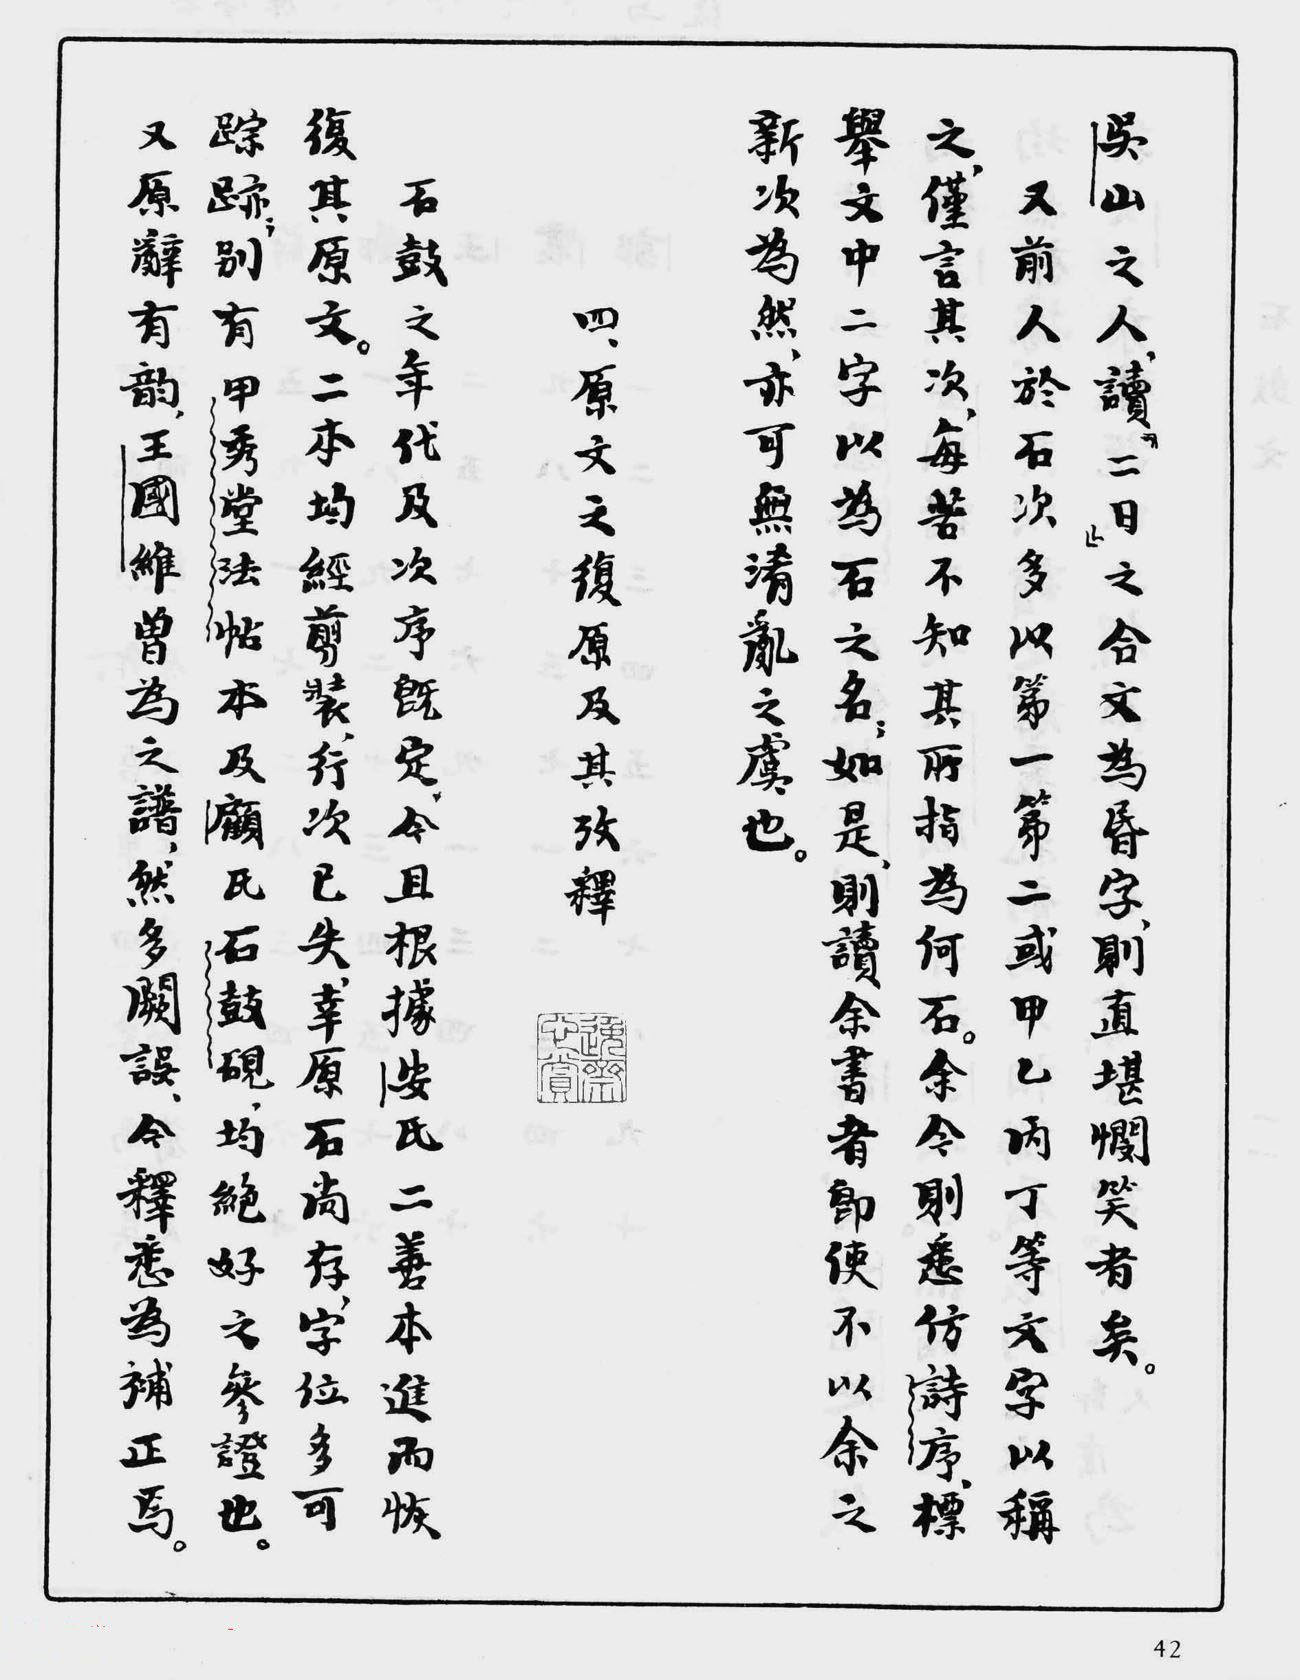 吴山之人，讀「二日」之合文為昏字，則直堪憫笑者矣。
又前人於石次多以第一第二或甲乙丙丁等文字以稱
之，僅言其次，每苦不知其所指為何石。余今則悉仿詩序，標
舉文中二字以為石之名；如是，則讀余書者即使不以余之
新次為然，亦可無淆亂之虞也。
四、原文之復原及其攷釋
石鼓之年代及次序既定，今且根據安氏二善本進而恢
復其原文。二本均經剪裝，行次已失，幸原石尚存，字位多可
踪跡；别有甲秀堂法帖本及顧氏石鼓硯，均絶好之參證也。
又原辭有韵，王國維曾為之譜，然多闕誤，今釋悉為補正焉。
42